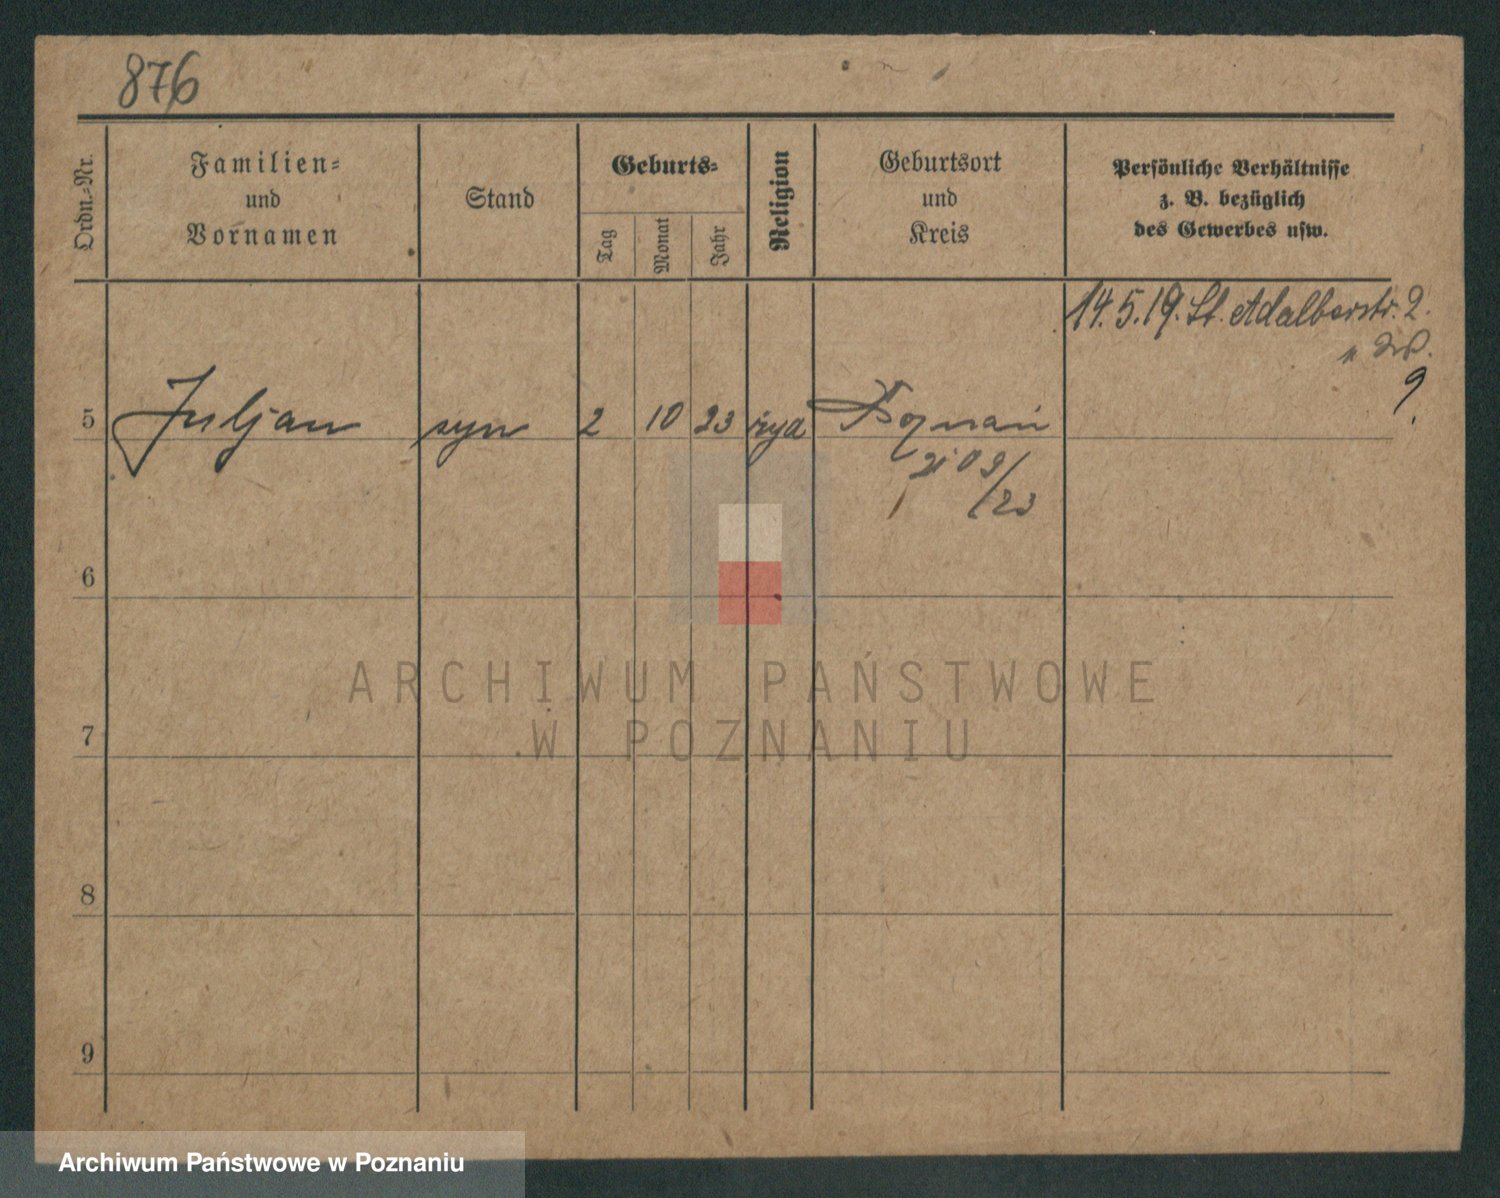 876
Ordn.-Nr.
Familien-
und
Vornamen
Stand
Geburts-
Tag
Monat
Jahr
Religion
Geburtsort
und
Kreis
Persönliche Verhältnisse
z. B. bezüglich
des Gewerbes usw.
14.5.19. St. Adalbertstr. 2.
9.
5 Juljan syn 2 10 23 żyd Poznań
/23
6
7
8
9
ARCHIWUM PAŃSTWOWE
W POZNANIU
Archiwum Państwowe w Poznaniu